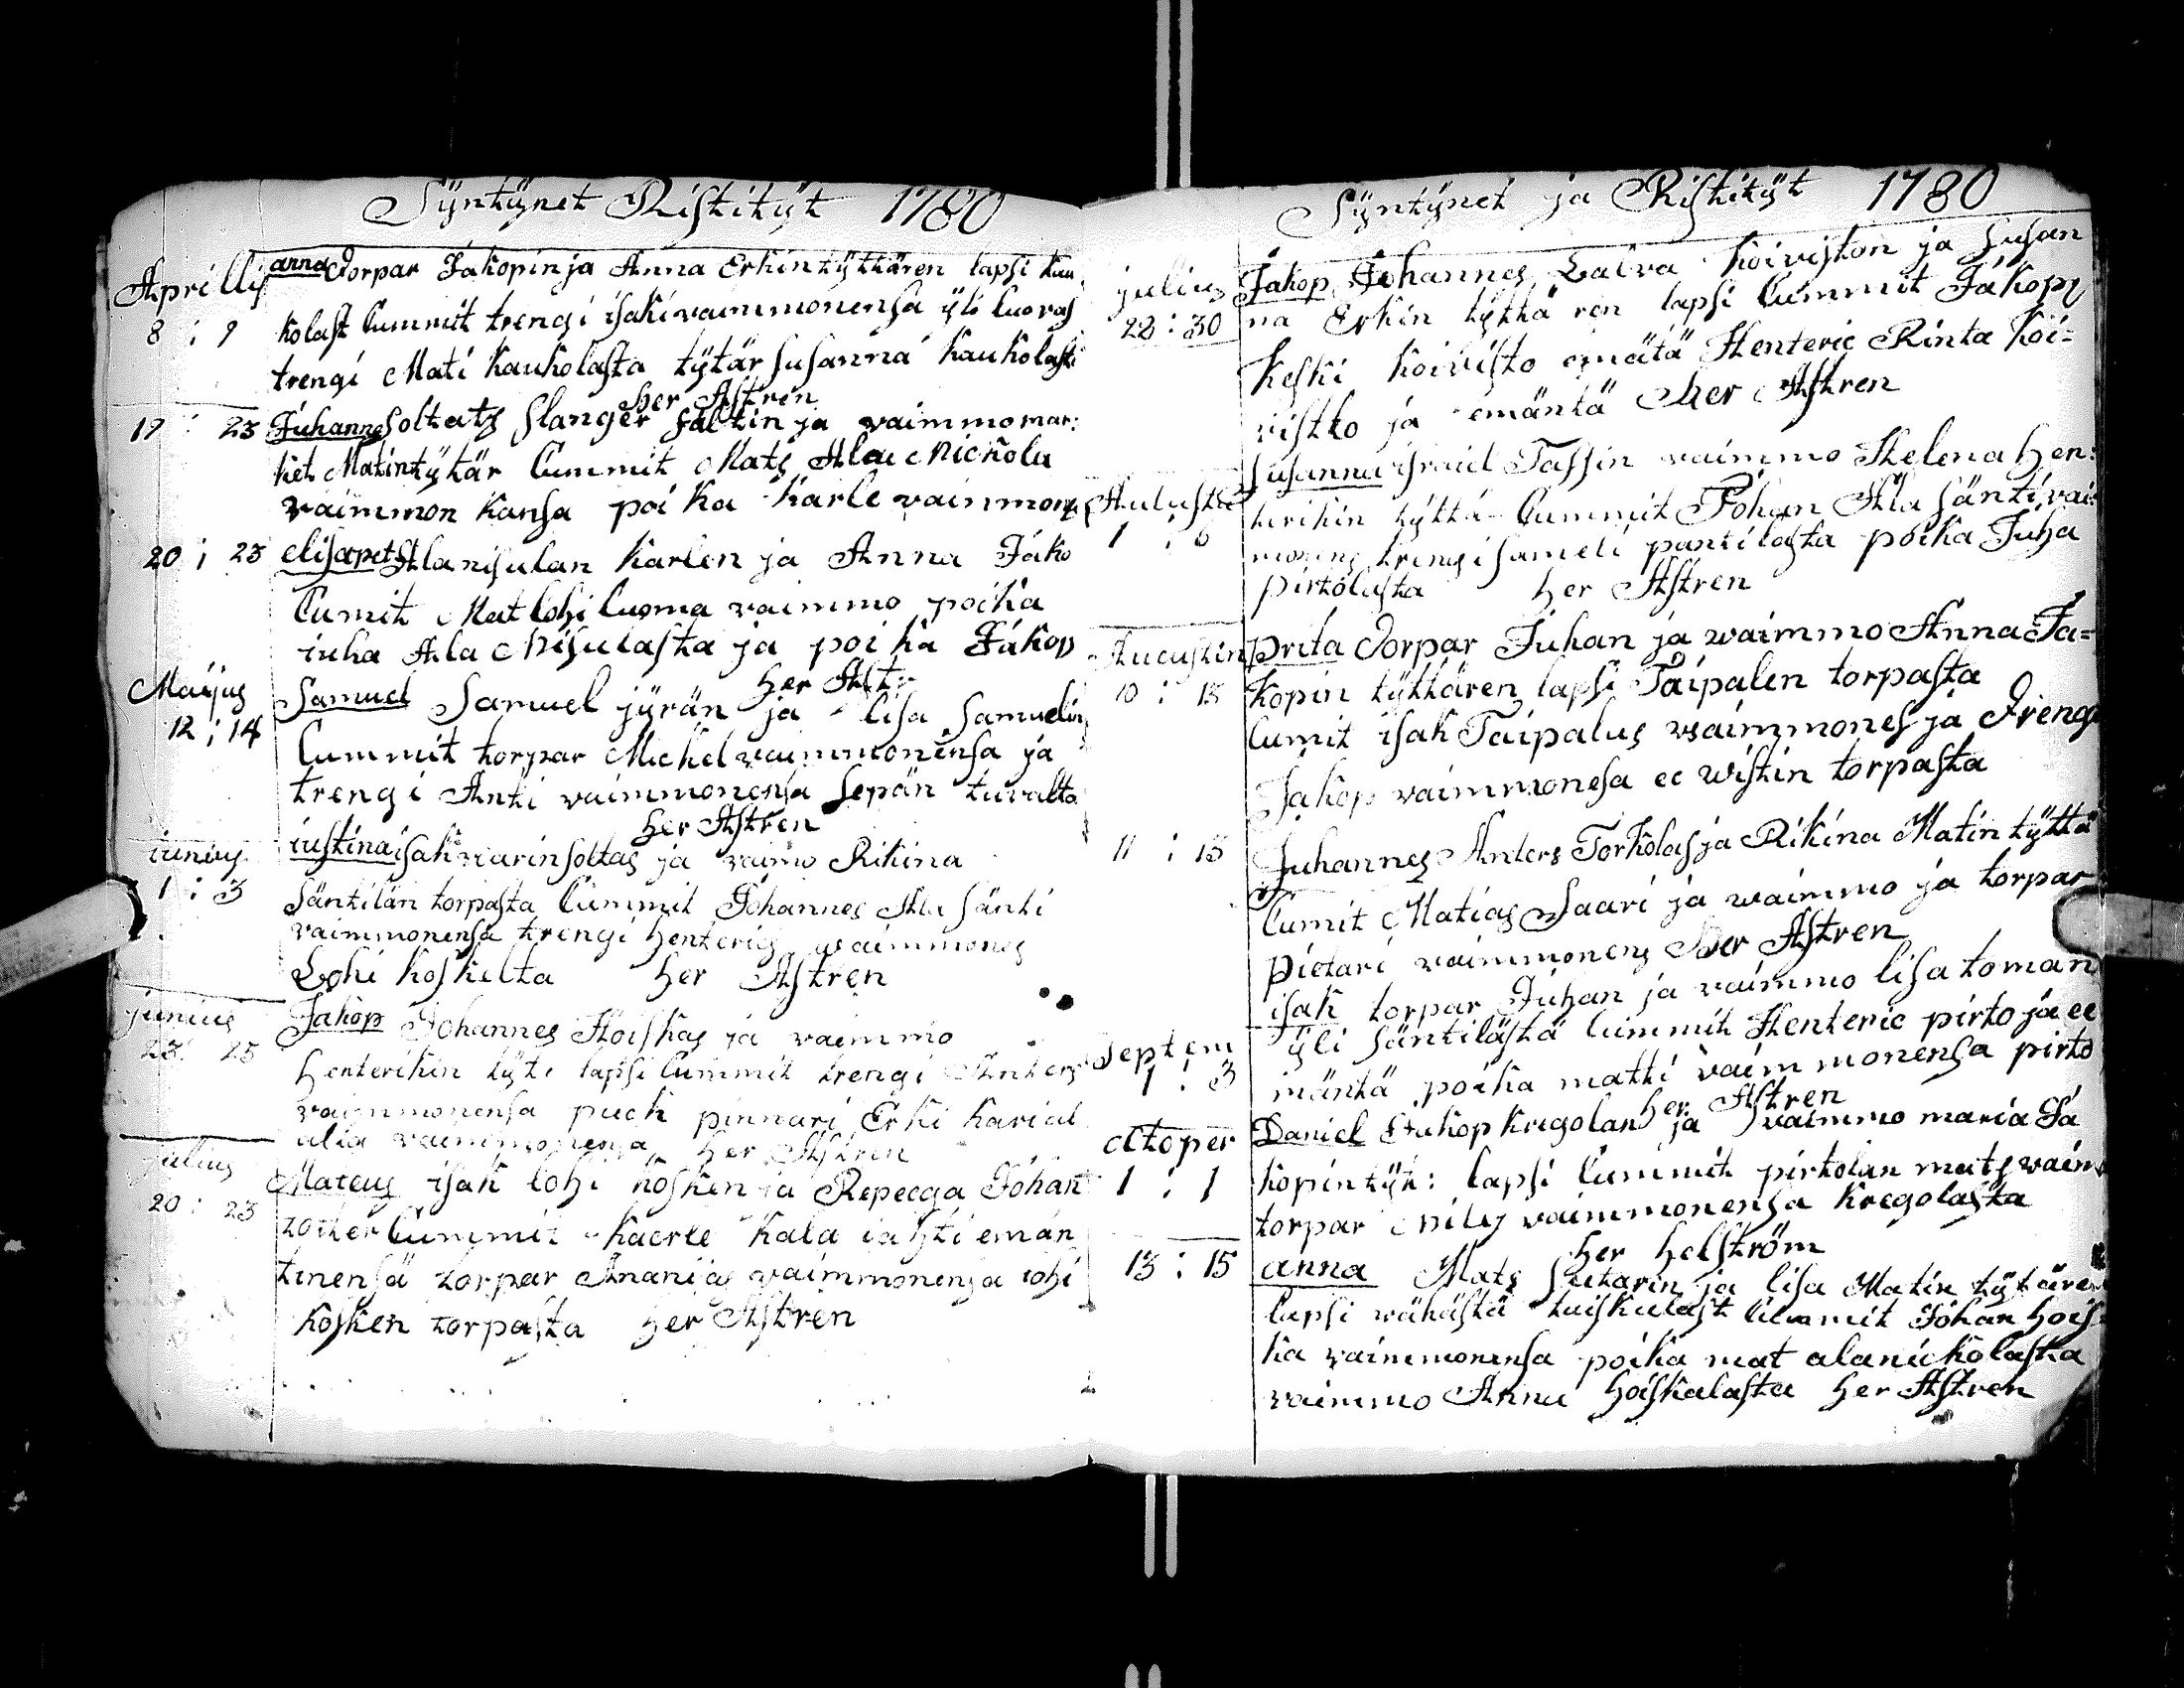 Syntynet Ristityt 1780
Aprillis anna Torpar Jakopin ja Anna Erkin tyttären lapsi kau
8 : 9 kolast Cummit trengi isaki vaimmonensa yli luoras
trengi Mati kaukolasta tytär susanna kaukolast
her Astren
19 : 23 Juhannes soltatz slanger faltin ja vaimmo mar:
ket Matintytär Cummit Mats Ala Nickola
vaimmon kansa poika karle vaimmon
20 ; 23 elisapet Ala nisulan karlen ja Anna Jako
Cumit Mat lohi luoma vaimmo poika
iuha Ala Nisulasta ja poika Jakop
her Astr
Maijus Samuel Samuel jyrän ja lisa Samuelin
12 ; 14 Cummit torpar Michel vaimmonensa ja
trengi Anti vaimmonensa sepän tuvalta
her Astren
iunius iustina isak varin soltas ja vaimo Rikina
1 : 3 säntilän torpasta Cummit Johannes Ala sänti
vaimmonensa trengi henterics vaimmones
Lohi koskelta her Astren
junius Jakop Johannes Hoiskas ja vaimmo
23 : 25 henterikin tyt: lapsi Cummit trengi Anters
vaimmonensa puck pinnari Erki karial
alta vaimmonensa her Astren
julius Mateus isak lohi kosken ja Repecga Johan
20 : 23 toter Cummit kaerle kala iahti emän
tinensä torpar Ananias vaimmonensa lohi
kosken torpasta her Astren
Syntynet ja Ristityt 1780
julius Jakop Johannes Lalva koiviston ja susan
28 : 30 na Erkin tyttä ren lapsi Cummit Jakop
keski koivisto emätä Henteric Rinta koi=
visto ja emäntä her Astren
susanna israel Tassin vaimmo Helena hen:
Aulustus terikin tyttä Cummit Johan Ala sänti vai
1 : 6 mones trengi sameli pantilasta poika Juha
pirtolasta her Astren
Aucustin prita Torpar Juhan ja waimmo Anna Ja=
10 : 15 kopin tyttären lapsi Taipalen torpasta
Cumit isak Taipalus waimmones ja Trengi
Jakop vaimmonesa ee wistin torpasta
11 : 15 Juhannes Anters Torkolas ja Rikina Matin tyttä
Cumit Matias Saari ja waimmo ja torpar
pietari vaimmonens her Astren
isak torpar Juhan ja vaimmo lisa toman
Septem yli säntilästä Cummit Henteric pirto ja ee
1 : 3 mäntä poika matti vaimmonensa pirto
her Astren
Oktoper Daniel Jakop kregolan ja vaimmo maria Ja
1 : 1 kopin tyt: lapsi Cummit pirtolan mats vaim
torpar Nils vaimmonensa kregolasta
her helström
13 : 15 anna Mats sutarin ja lisa Matin tytären
lapsi vähästä tuiskulast Cummit Johan hois
ka vaimmonensa poika mat alanickolasta
vaimmo Anna hoiskalasta her Astren